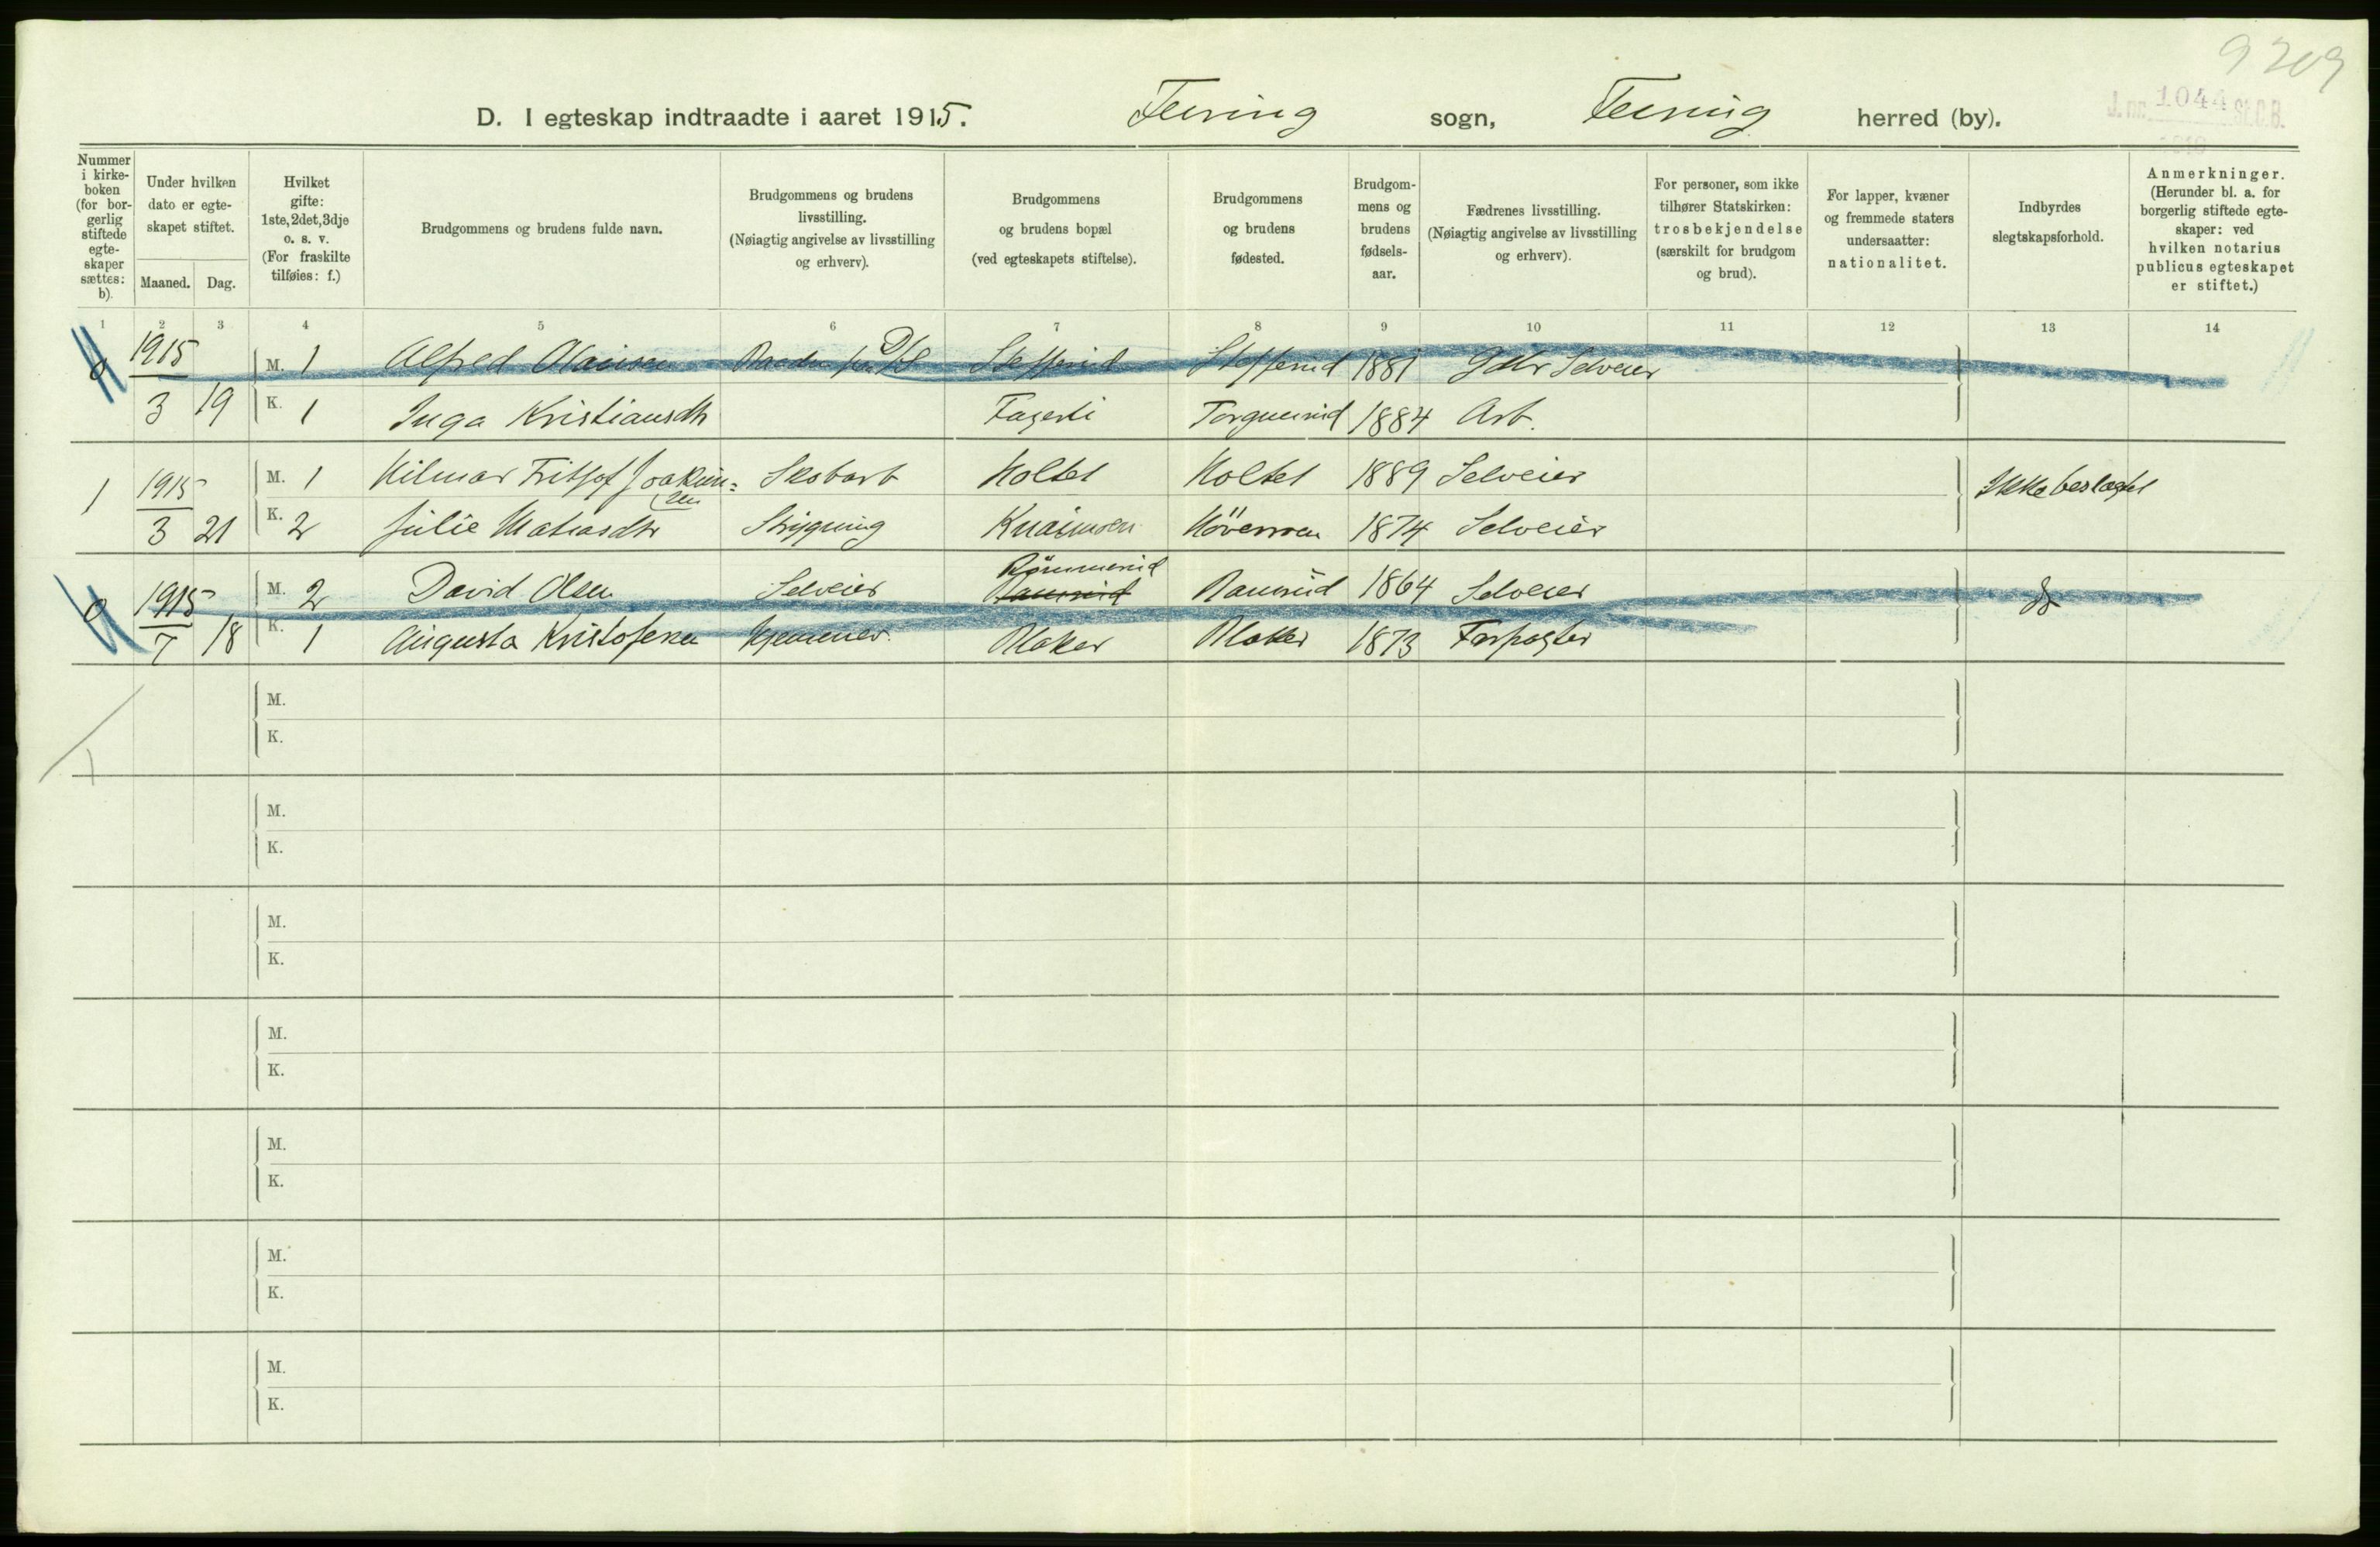 9209
J. nr. 1044 St.C.B.
D. I egteskap indtraadte i aaret 1915. Feiring sogn, Feiring herred (by).
Nummer i kirke-boken (for bor-gerlig stiftede egte-skaper sættes: b).
Under hvilken dato er egte-skapet stiftet.
Maaned. Dag.
Hvilket gifte: 1ste, 2det, 3dje o. s. v. (For fraskilte tilføies: f.)
Brudgommens og brudens fulde navn.
Brudgommens og brudens livsstilling. (Nøiagtig angivelse av livsstilling og erhverv).
Brudgommens og brudens bopæl (ved egteskapets stiftelse).
Brudgommens og brudens fødested.
Brudgom-mens og brudens fødsels-aar.
Fædrenes livsstilling. (Nøiagtig angivelse av livsstilling og erhverv).
For personer, som ikke tilhører Statskirken: trosbekjendelse (særskilt for brudgom og brud).
For lapper, kvæner og fremmede staters undersaatter: nationalitet.
Indbyrdes slegtskapsforhold.
Anmerkninger. (Herunder bl. a. for borgerlig stiftede egte-skaper: ved hvilken notarius publicus egteskapet er stiftet.)
1 2 3 4 5 6 7 8 9 10 11 12 13 14
0 1915 M. 1 Alfred Olausen Stefferud Stefferud 1881 Gdbr Selveier
3 19 K. 1 Inga Kristiansdtr Fagerli Torgunrud 1884 Arb.
1 1915 M. 1 Hilmar Fritjof Joakim= Skobarb Holtet Holtet 1889 Selveier Ikke beslægtet
sen
3 21 K. 2 Julie Matiasdtr Strygning Knaimoen Hövermoen 1874 Selveier
Römmerud
0 1915 M. 2 David Olsen Selveier Ramrud Ramrud 1864 Selveier
7 18 K. 1 Augusta Kristofersen Hjemmev. Blaker Blaker 1873 Forpagter
M.
K.
M.
K.
M.
K.
M.
K.
M.
K.
M.
K.
M.
K.